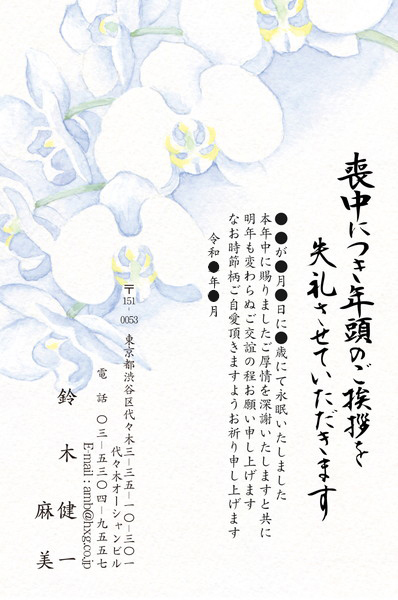 喪中につき年頭のご挨拶を
失礼させていただきます
●●が●月●日に●歳にて永眠いたしました
本年中に賜りましたご厚情を深謝いたしますと共に
明年も変わらぬご交誼の程お願い申し上げます
なお時節柄ご自愛頂きますようお祈り申し上げます
令和●年●月
〒151-0053
東京都渋谷区代々木三-五-一〇-三〇一
代々木オーシャンビル
電話 〇三-五三〇四-九五五七
E-mail : amb@hxg.co.jp
鈴木 健一
麻美